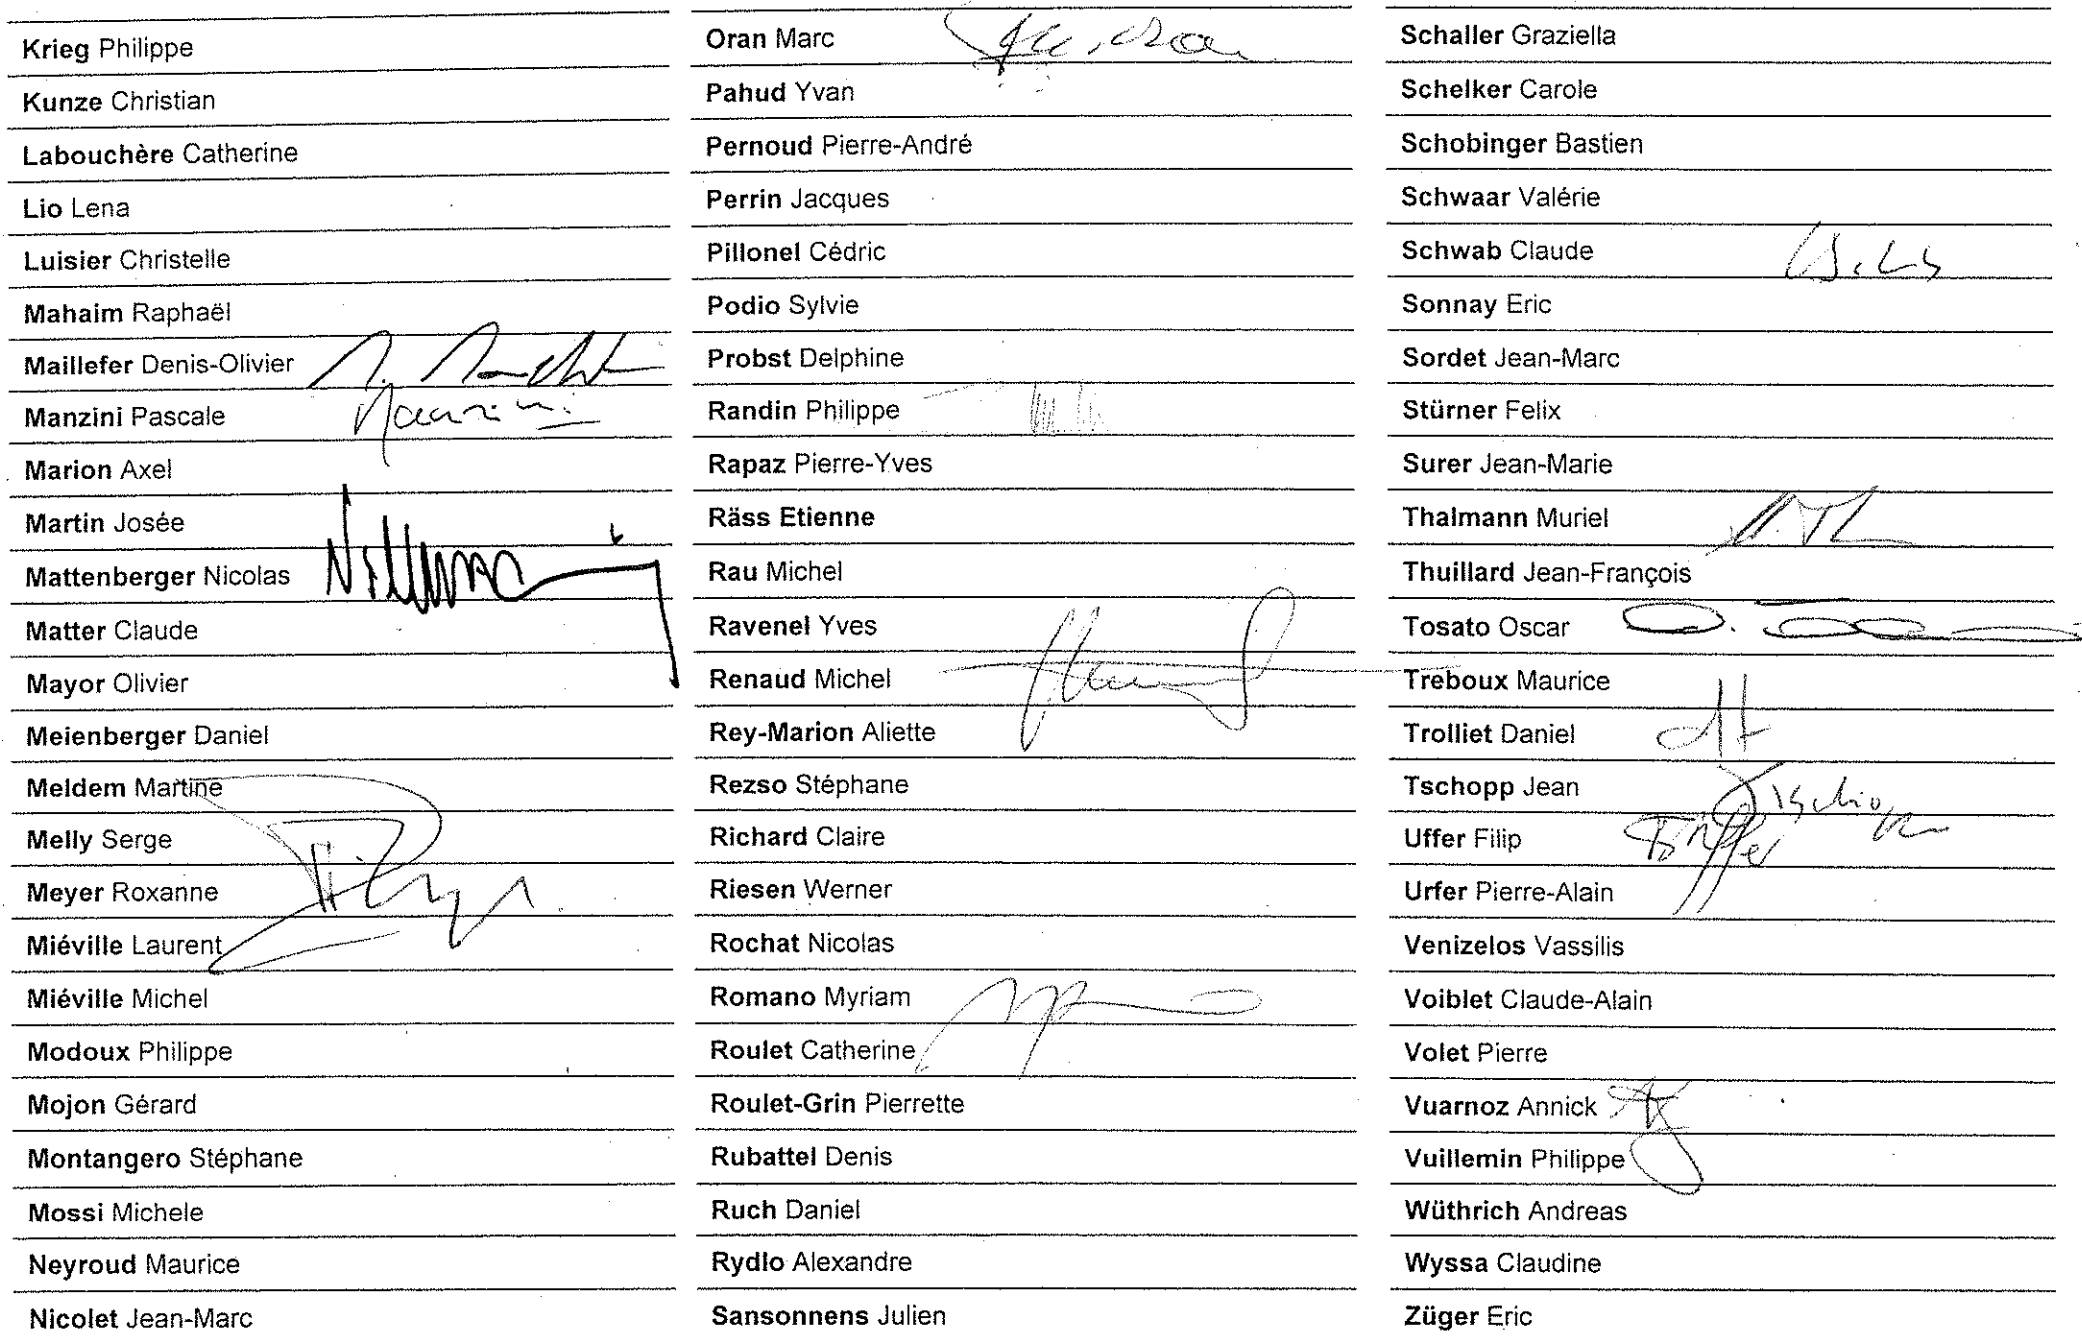 Krieg Philippe
Kunze Christian
Labouchère Catherine
Lio Lena
Luisier Christelle
Mahaim Raphaël
Maillefer Denis-Olivier
Manzini Pascale Manzini
Marion Axel
Martin Josée
Mattenberger Nicolas
Matter Claude
Mayor Olivier
Meienberger Daniel
Meldem Martine
Melly Serge
Meyer Roxanne
Miéville Laurent
Miéville Michel
Modoux Philippe
Mojon Gérard
Montangero Stéphane
Mossi Michele
Neyroud Maurice
Nicolet Jean-Marc
Oran Marc
Pahud Yvan
Pernoud Pierre-André
Perrin Jacques
Pillonel Cédric
Podio Sylvie
Probst Delphine
Randin Philippe
Rapaz Pierre-Yves
Räss Etienne
Rau Michel
Ravenel Yves
Renaud Michel
Rey-Marion Aliette
Rezso Stéphane
Richard Claire
Riesen Werner
Rochat Nicolas
Romano Myriam
Roulet Catherine
Roulet-Grin Pierrette
Rubattel Denis
Ruch Daniel
Rydlo Alexandre
Sansonnens Julien
Schaller Graziella
Schelker Carole
Schobinger Bastien
Schwaar Valérie
Schwab Claude
Sonnay Eric
Sordet Jean-Marc
Stürner Felix
Surer Jean-Marie
Thalmann Muriel
Thuillard Jean-François
Tosato Oscar
Treboux Maurice
Trolliet Daniel
Tschopp Jean
Uffer Filip
Urfer Pierre-Alain
Venizelos Vassilis
Voiblet Claude-Alain
Volet Pierre
Vuarnoz Annick
Vuillemin Philippe
Wüthrich Andreas
Wyssa Claudine
Züger Eric